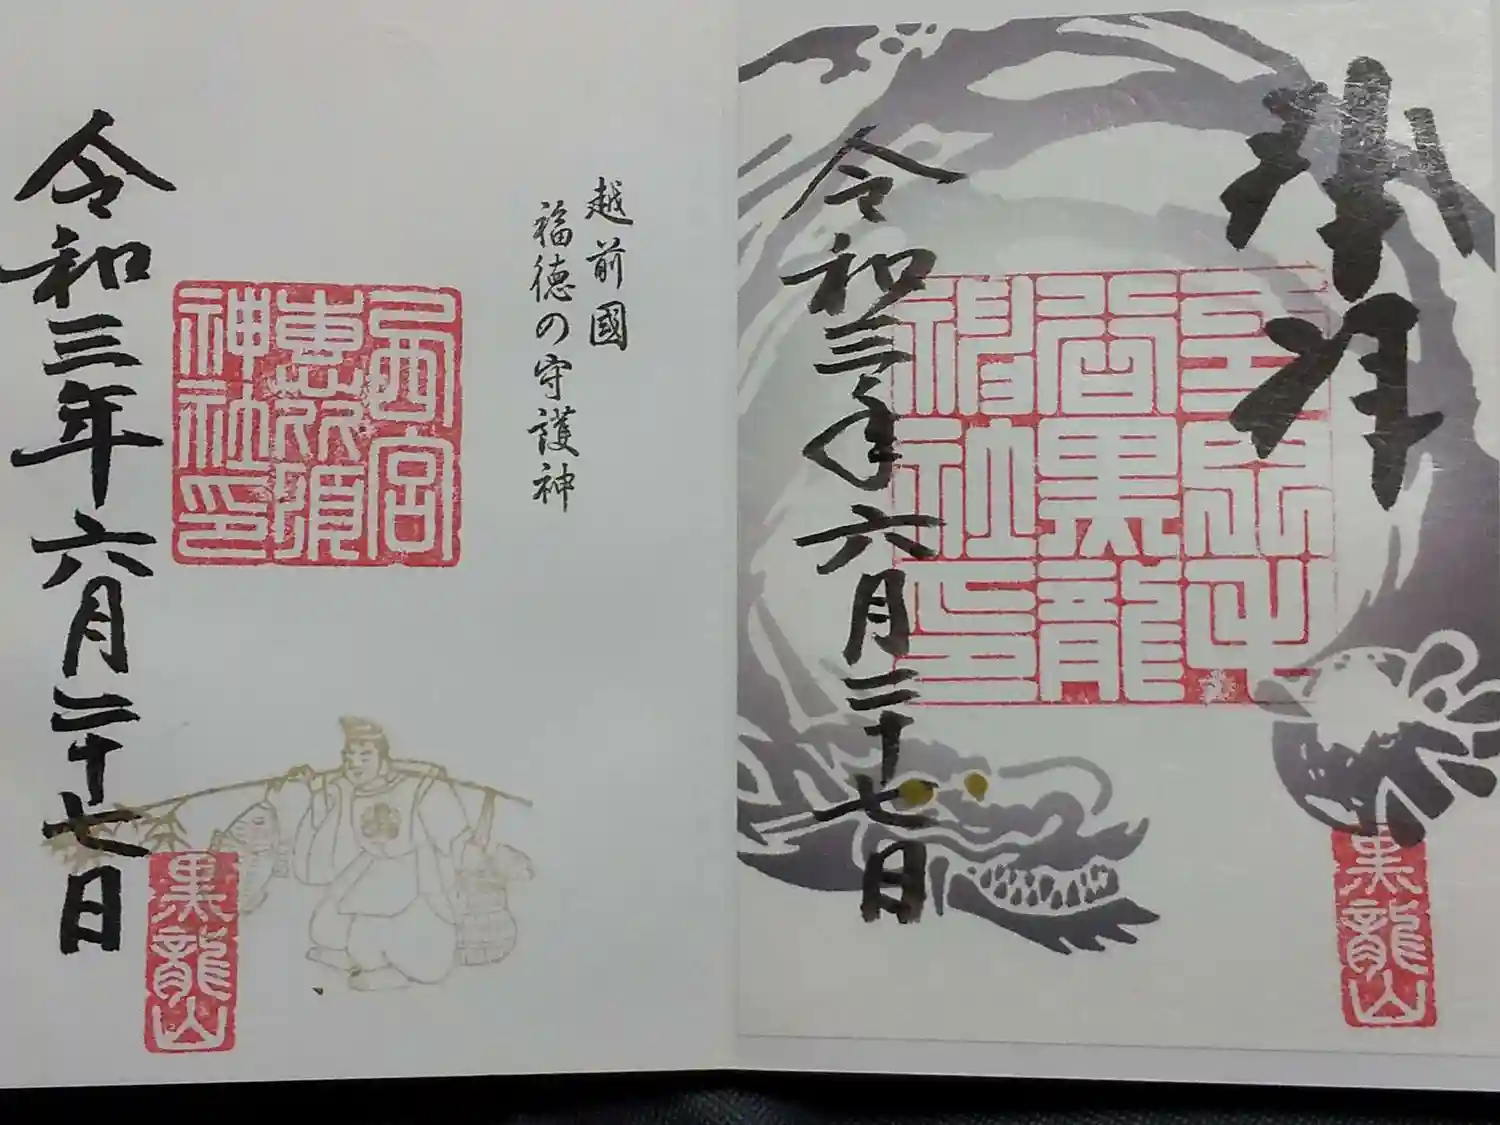 奉拝
黒龍
神社印
令和三年六月二十七日
黒龍山
越前國
福徳の守護神
西宮
恵比須
神社印
令和三年六月二十七日
黒龍山